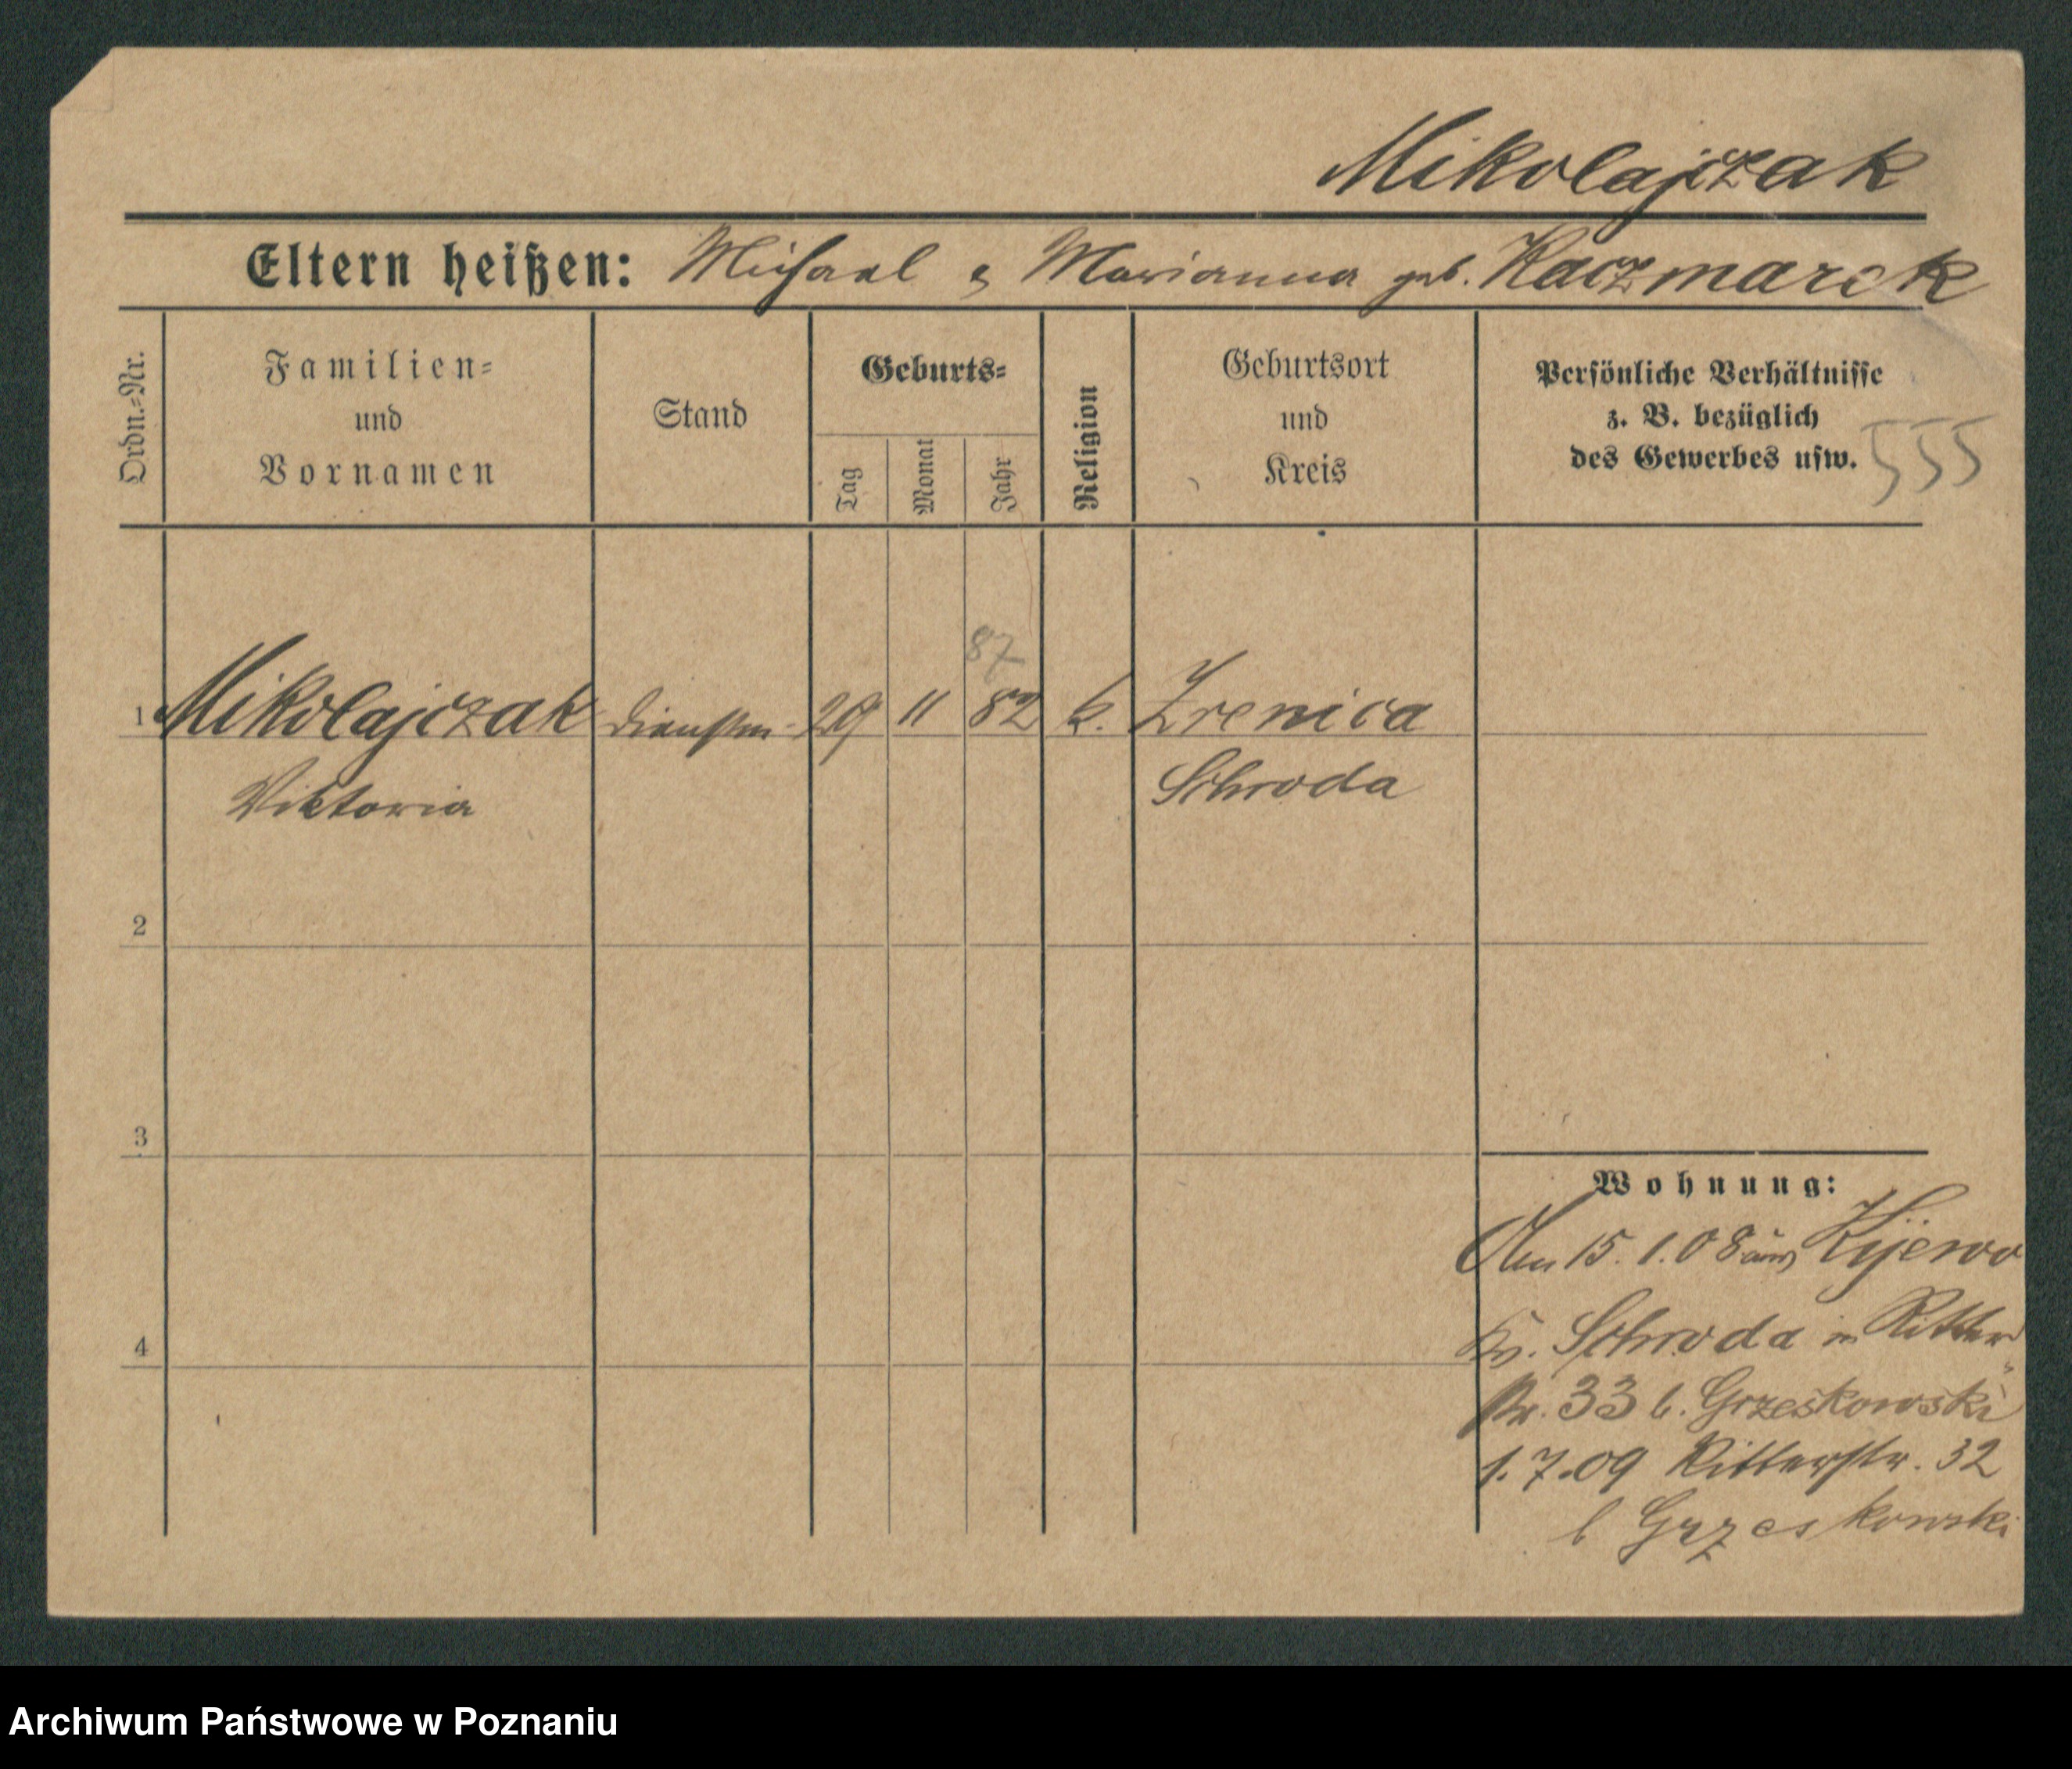 Mikolajczak
Eltern heißen: Michael & Marianna geb. Kaczmarek
Ordn.-Nr.
Familien-
und
Vornamen
Stand
Geburts-
Tag
Monat
Jahr
Religion
Geburtsort
und
Kreis
Persönliche Verhältnisse
z. B. bezüglich
des Gewerbes usw.
555
87
1 Mikolajczak Dienstm. 29 11 82 k. Zrenica
Viktoria Schroda
2
3
4
Wohnung:
Am 15.1.08 aus Kijewo
Kr. Schroda in Ritter
str. 33 b. Grzeskowski
1.7.09 Ritterstr. 32
b Grzeskowski
Archiwum Państwowe w Poznaniu